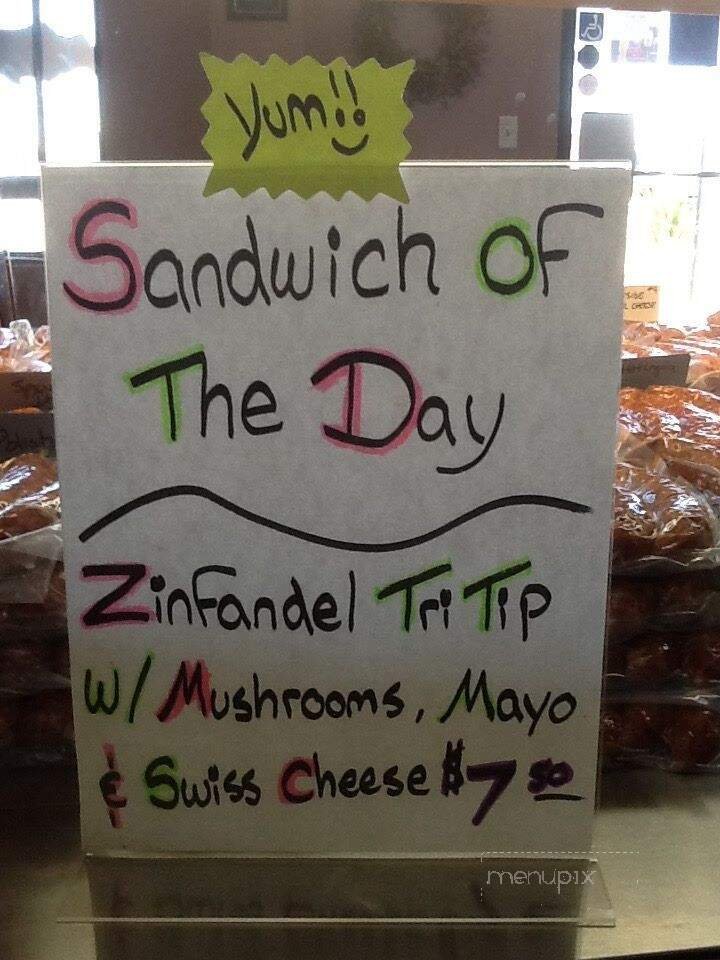 Yum!!
Sandwich Of
The Day
Zinfandel Tri Tip
W/ Mushrooms, Mayo
& Swiss Cheese $7 50
menupix